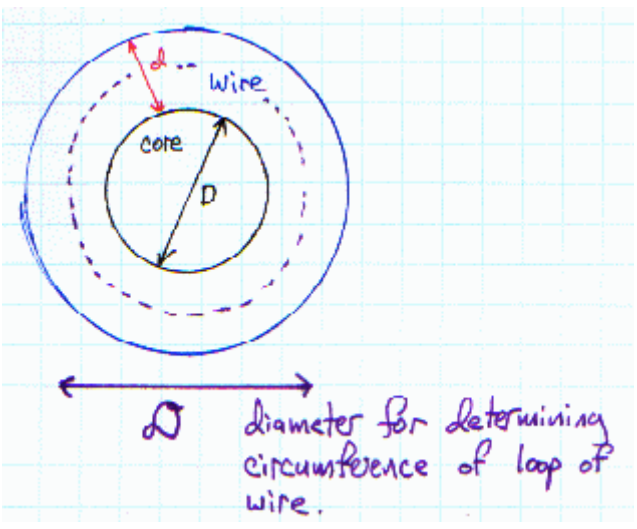 d
wire
core
D
D diameter for determining
circumference of loop of
wire.